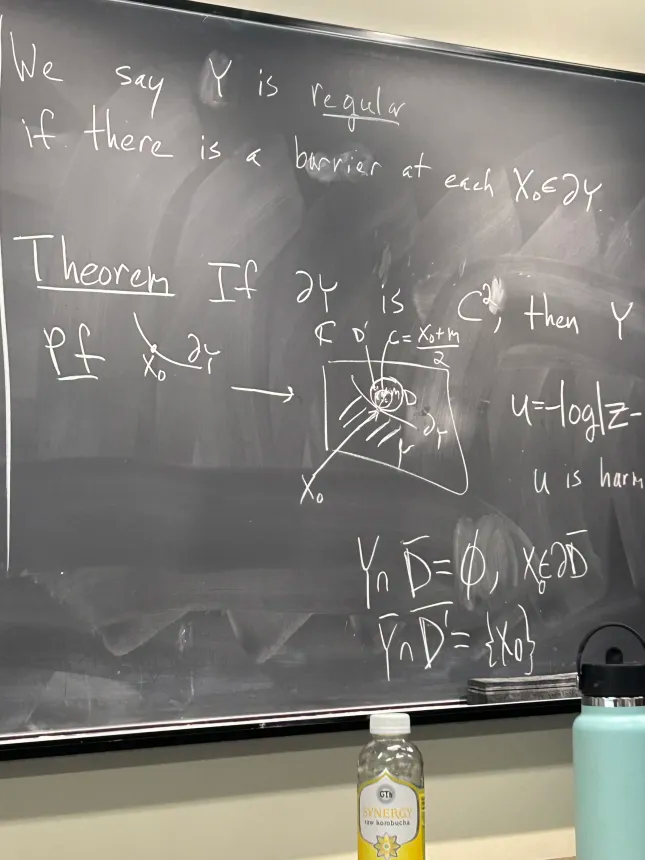 We say Y is regular
if there is a barrier at each X₀∈∂Y.
Theorem If ∂Y is C², then Y
Pf
X₀ ∂Y
ℂ D' C = (X₀+m)/2
D
∂Y
Y
X₀
u=-log|z-
u is harm
Y∩D̅=∅, X₀∈∂D̅
Y̅∩D̅'={X₀}
GT's
SYNERGY
raw kombucha